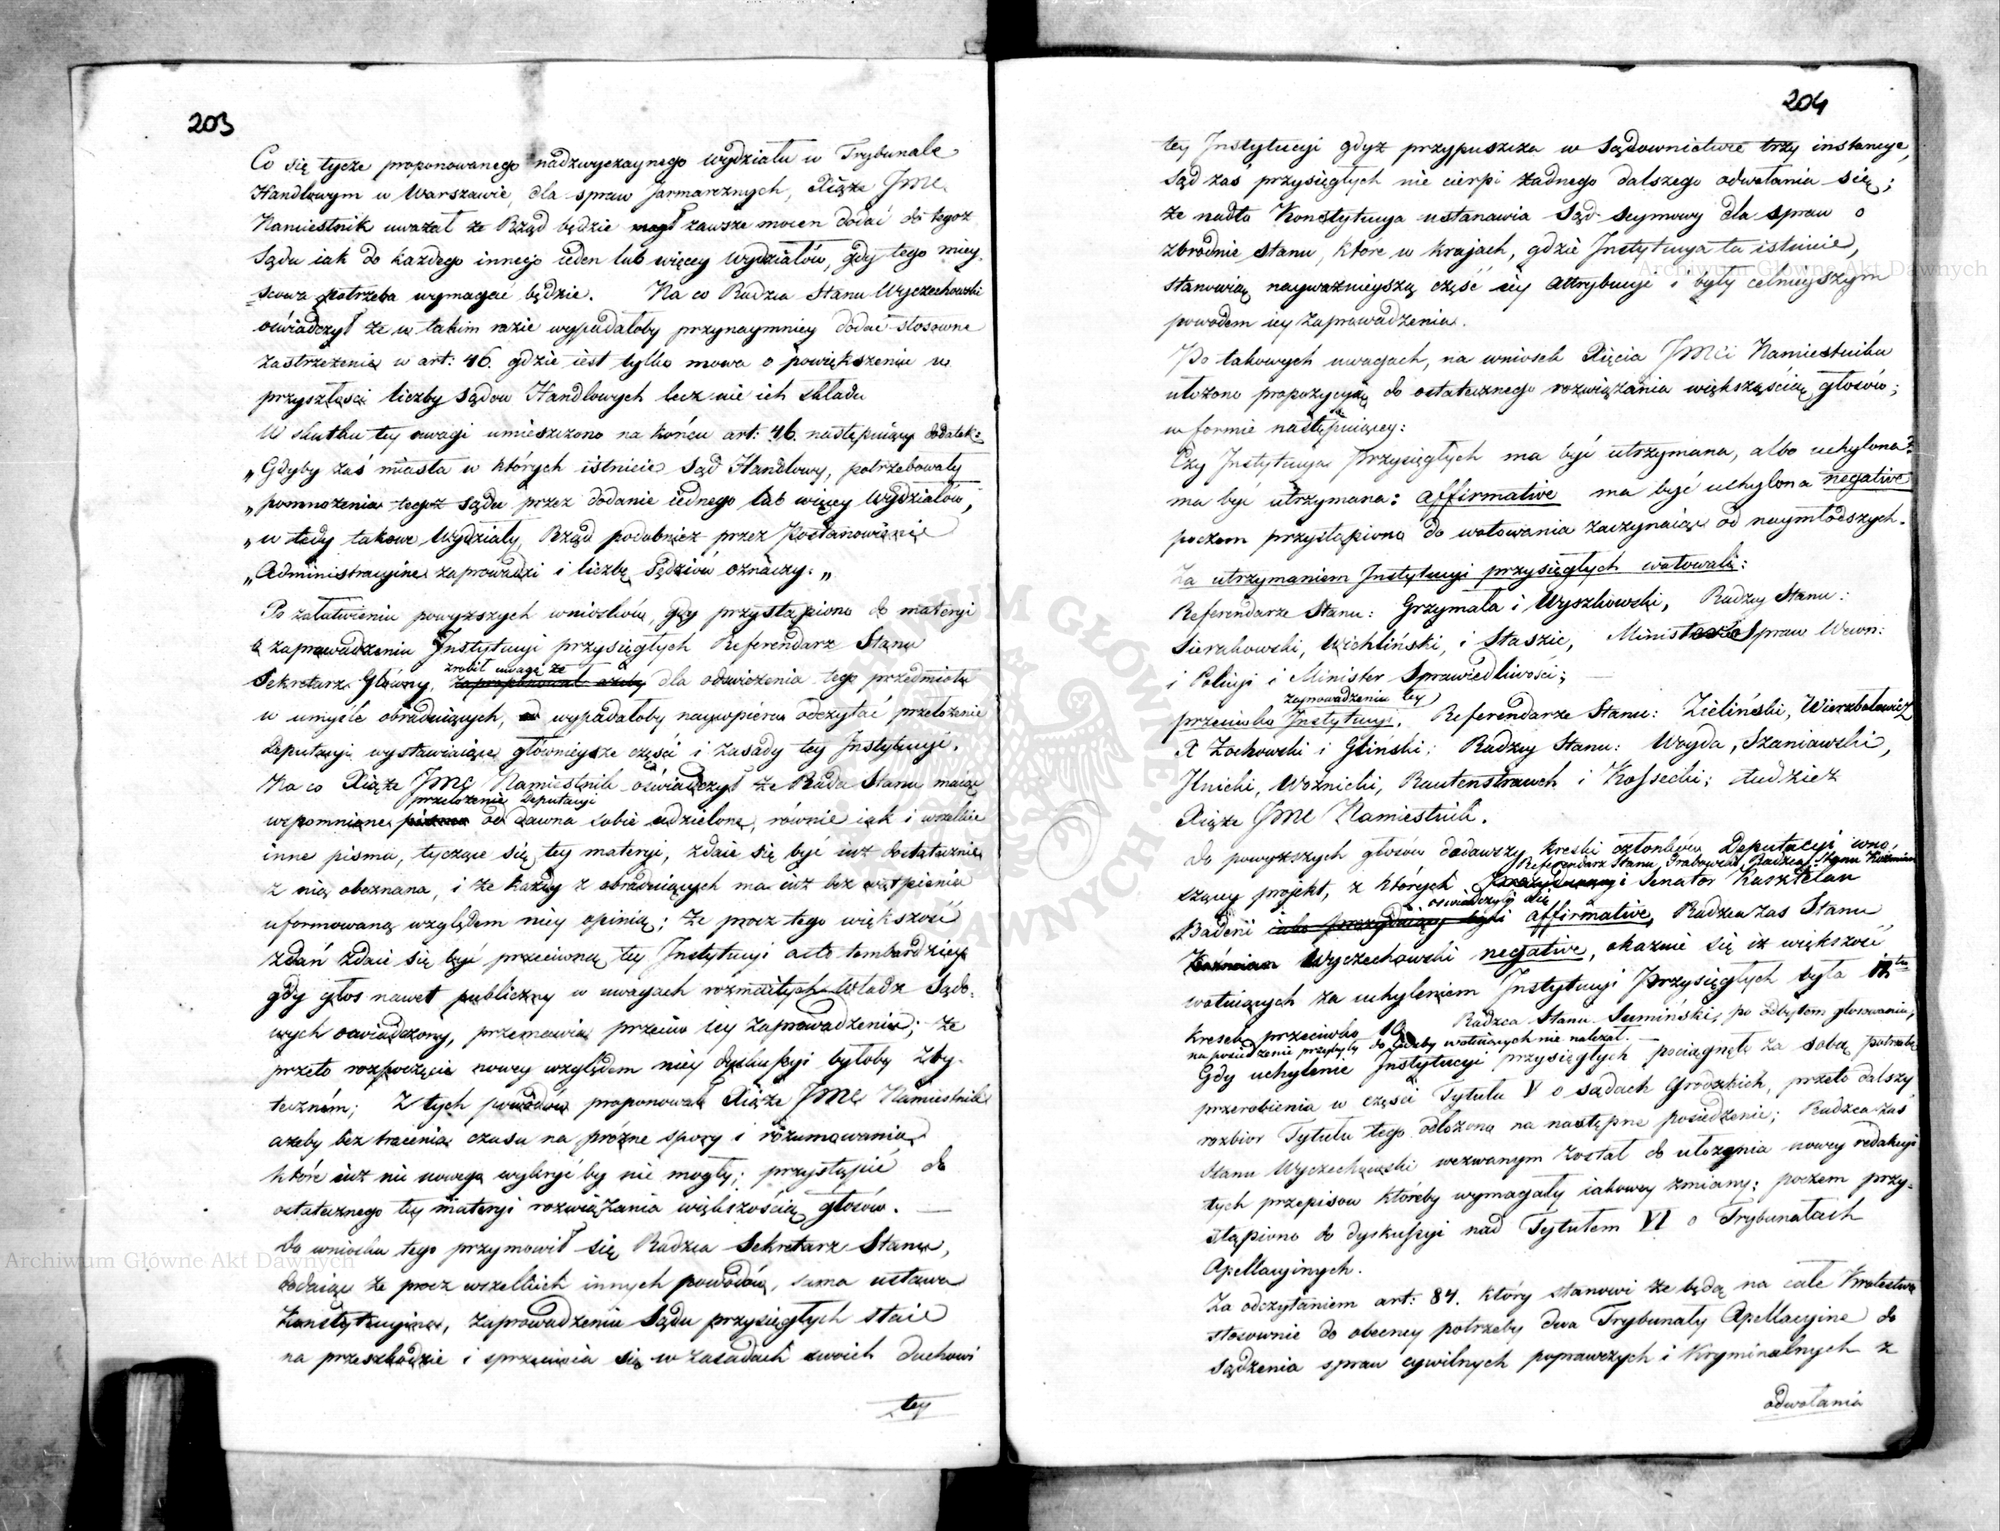 203
Co się tycze proponowanego nadzwyczaynego wydziału w Trybunale
Handlowym w Warszawie, dla spraw Jarmarcznych, Xiąże JMC
Namiestnik uważał że Rząd będzie mógł zawsze mocen dodać do tegoż
Sądu iak do każdego innego ieden lub więcey wydziałów, gdy tego miey-
scowa potrzeba wymagać będzie. Na co Radzca Stanu Wyczechowski
oświadczył że w takim razie wypadałoby przynaymniey dodać stosowne
zastrzeżenia w art: 46. gdzie iest tylko mowa o powiększeniu w
przyszłości liczby Sądów Handlowych lecz nie ich składu
W skutku tey uwagi umieszczono na końcu art: 46. następuiący dodatek:
„Gdyby zaś miasta w których istnieie Sąd Handlowy, potrzebowały
„pomnożenia tegoż sądu przez dodanie iednego lub więcey Wydziałów,
„w tedy takowe Wydziały, Rząd podobnież przez Postanowienie
„Administracyine zaprowadzi i liczbę Sędziów oznaczy:„
Po załatwieniu powyższych wniosków, gdy przystąpiono do materyi
o zaprowadzeniu Instytucyi przysięgłych Referendarz Stanu
zrobił uwagę że
Sekretarz Główny, zaproponował ażeby dla odświeżenia tego przedmiotu
w umyśle obraduiących, wypadałoby naypopierw odczytać przełożenie
Deputacyi wystawiaiące głównieysze części i zasady tey Instytucyi.
Na co Xiąże JMC Namiestnik oświadczył że Rada Stanu maiąc
przełożenie Deputacyi
wspomnione pismo od dawna sobie udzielone, równie iak i wszelkie
inne pisma, tyczące się tey materyi, zdaie się być iuż dostatecznie
z nią obeznana, i że każdy z obraduiących ma iuż bez wątpienia
uformowaną względem niey opinią; że procz tego większość
zdań zdaie się być przeciwną tey Instytucyi a to tembardziey
gdy głos nawet publiczny w uwagach rozmaitych Władz Sądo-
wych oświadczony, przemawia przeciw iey zaprowadzeniu; że
przeto rozpoczęcie nowey względem niey dyskussyi byłoby zby-
teczném; Z tych powodów proponował Xiąże JMC Namiestnik
ażeby bez tracenia czasu na próżne spory i rozumowania,
które iuż nic nowego wykryć by nie mogły; przystąpić do
ostatecznego tey materyi rozwiązania większością głosów.
Do wniosku tego przymówił się Radzca Sekretarz Stanu,
dodaiąc że procz wszelkich innych powodów, sama ustawa
Konstytucyina, zaprowadzeniu Sądu przysięgłych staie
na przeszkodzie i sprzeciwia się w zasadach swoich duchowi
tey
204
tey Instytucyi gdyż przypuszcza w Sądownictwie trzy instancye,
Sąd zaś przysięgłych nie cierpi żadnego dalszego odwołania się;
że nadto Konstytucya ustanawia Sąd Seymowy dla spraw o
zbrodnie stanu, które w krajach, gdzie Instytucya ta istnieie,
stanowią nayważnieyszą część iey attrybucye i były celnieyszym
powodem iey zaprowadzenia.
Po takowych uwagach, na wniosek Xięcia JMCi Namiestnika
ułożono propozycyią do ostatecznego rozwiązania większością głosów;
w formie następuiącey:
Czy Instytucya Przysięgłych ma być utrzymana, albo uchylona?
ma być utrzymana: affirmative ma być uchylona negative
poczem przystąpiono do wotowania zaczynaiąc od naymłodszych.
Za utrzymaniem Instytucyi przysięgłych wotowali:
Referendarze Stanu: Grzymała i Wyszkowski, Radzcy Stanu:
Sierakowski, Wichliński, i Staszic, Minister Spraw Wewn:
i Policyi i Minister Sprawiedliwości;
zaprowadzeniu tey
przeciwko Instytucyi, Referendarze Stanu: Zieliński, Wierzbołowicz
X Żochowski i Gliński: Radzcy Stanu: Woyda, Szaniawski,
Ilnicki, Woźnicki, Rautenstrauch i Kossecki; tudzież
Xiąże JMC Namiestnik.
Do powyższych głosów dodawszy kreski członków Deputacyi wno-
Referendarz Stanu, Grabowski Radzca Stanu Koźmian
szący projekt, z których i Senator Kasztelan
oświadczyli się
Badeni affirmative, Radzca zas Stanu
Koźmian Wyczechowski negative, okazuie się iż większość
wotuiących za uchyleniem Instytucyi Przysięgłych była 12tu
kresek przeciwko 10. Radzca Stanu Sumiński, po odbytem głosowaniu,
na posiedzenie przybyły do liczby wotuiących nie należał.
Gdy uchylenie Instytucyi przysięgłych pociągnęło za sobą potrzebę
przerobienia w części Tytułu V o sądach Grodzkich, przeto dalszy
rozbiór Tytułu tego odłożono na następne posiedzenie; Radzca zaś
Stanu Wyczechowski wezwanym został do ułożenia nowey redakcyi
tych przepisow któreby wymagały iakowey zmiany; poczem przy-
stąpiono do dyskussyi nad Tytułem VI o Trybunałach
Apellacyinych.
Za odczytaniem art: 84. który stanowi że będą na całe Królestwo
stosownie do obecney potrzeby dwa Trybunały Apellacyine do
sądzenia spraw cywilnych poprawczych i Kryminalnych z
odwołania
Archiwum Główne Akt Dawnych
Archiwum Główne Akt Dawnych